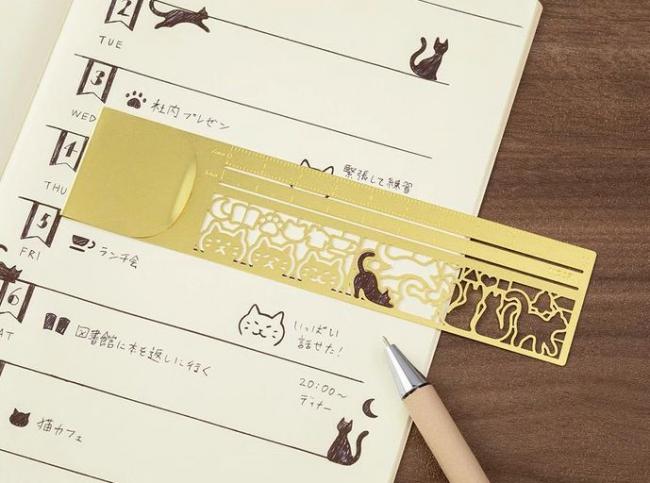 2
TUE
3
WED
社内プレゼン
4
THU
緊張して練習
5
FRI
ランチ会
6
AT
図書館に本を返しに行く
いっぱい
話せた!
20:00〜
ディナー
猫カフェ